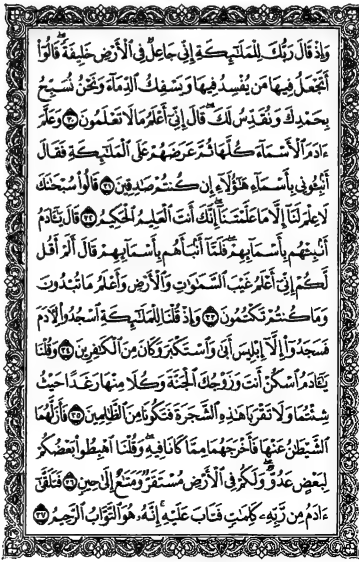 وَإِذْ قَالَ رَبُّكَ لِلْمَلَٰٓئِكَةِ إِنِّى جَاعِلٌ فِى ٱلْأَرْضِ خَلِيفَةً ۖ قَالُوٓا۟
أَتَجْعَلُ فِيهَا مَن يُفْسِدُ فِيهَا وَيَسْفِكُ ٱلدِّمَآءَ وَنَحْنُ نُسَبِّحُ
بِحَمْدِكَ وَنُقَدِّسُ لَكَ ۖ قَالَ إِنِّىٓ أَعْلَمُ مَا لَا تَعْلَمُونَ ﴿٣٠﴾ وَعَلَّمَ
ءَادَمَ ٱلْأَسْمَآءَ كُلَّهَا ثُمَّ عَرَضَهُمْ عَلَى ٱلْمَلَٰٓئِكَةِ فَقَالَ
أَنۢبِـُٔونِى بِأَسْمَآءِ هَٰٓؤُلَآءِ إِن كُنتُمْ صَٰدِقِينَ ﴿٣١﴾ قَالُوا۟ سُبْحَٰنَكَ
لَا عِلْمَ لَنَآ إِلَّا مَا عَلَّمْتَنَآ ۖ إِنَّكَ أَنتَ ٱلْعَلِيمُ ٱلْحَكِيمُ ﴿٣٢﴾ قَالَ يَٰٓـَٔادَمُ
أَنۢبِئْهُم بِأَسْمَآئِهِمْ ۖ فَلَمَّآ أَنۢبَأَهُم بِأَسْمَآئِهِمْ قَالَ أَلَمْ أَقُل
لَّكُمْ إِنِّىٓ أَعْلَمُ غَيْبَ ٱلسَّمَٰوَٰتِ وَٱلْأَرْضِ وَأَعْلَمُ مَا تُبْدُونَ
وَمَا كُنتُمْ تَكْتُمُونَ ﴿٣٣﴾ وَإِذْ قُلْنَا لِلْمَلَٰٓئِكَةِ ٱسْجُدُوا۟ لِـَٔادَمَ
فَسَجَدُوٓا۟ إِلَّآ إِبْلِيسَ أَبَىٰ وَٱسْتَكْبَرَ وَكَانَ مِنَ ٱلْكَٰفِرِينَ ﴿٣٤﴾ وَقُلْنَا
يَٰٓـَٔادَمُ ٱسْكُنْ أَنتَ وَزَوْجُكَ ٱلْجَنَّةَ وَكُلَا مِنْهَا رَغَدًا حَيْثُ
شِئْتُمَا وَلَا تَقْرَبَا هَٰذِهِ ٱلشَّجَرَةَ فَتَكُونَا مِنَ ٱلظَّٰلِمِينَ ﴿٣٥﴾ فَأَزَلَّهُمَا
ٱلشَّيْطَٰنُ عَنْهَا فَأَخْرَجَهُمَا مِمَّا كَانَا فِيهِ ۖ وَقُلْنَا ٱهْبِطُوا۟ بَعْضُكُمْ
لِبَعْضٍ عَدُوٌّ ۖ وَلَكُمْ فِى ٱلْأَرْضِ مُسْتَقَرٌّ وَمَتَٰعٌ إِلَىٰ حِينٍ ﴿٣٦﴾ فَتَلَقَّىٰٓ
ءَادَمُ مِن رَّبِّهِۦ كَلِمَٰتٍ فَتَابَ عَلَيْهِ ۚ إِنَّهُۥ هُوَ ٱلتَّوَّابُ ٱلرَّحِيمُ ﴿٣٧﴾